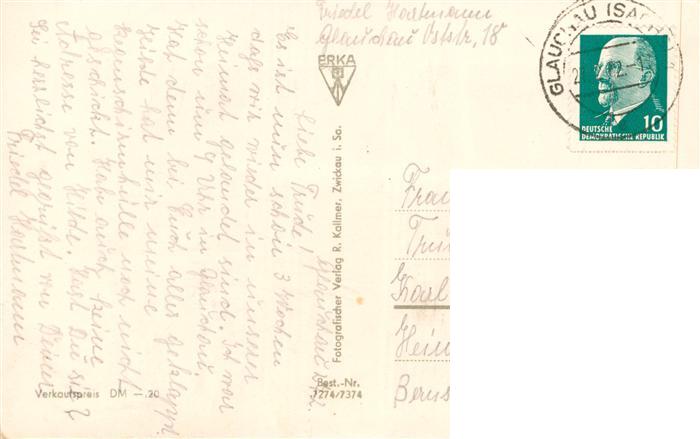 Friedel Hartmann
Glauchau Oststr. 18
GLAUCHAU (SACHS
DEUTSCHE
DEMOKRATISCHE REPUBLIK
10
ERKA
Fotografischer Verlag R. Kallmer, Zwickau i. Sa.
Best.-Nr.
7274/7374
Verkaufspreis DM —.20
Glauchau
Liebe Trude!
Es ist nun schon 3 Wochen
daß wir wieder in unserer
Heimat gelandet sind. Ich war
schon um 9 Uhr in Glauchau.
Hat denn bei Euch alles geklappt?
hat mir meine
noch nicht
geschickt. Hab auch keine
Adresse von Hilde. Hast Du sie?
Sei herzlichst gegrüßt von Deiner
Friedel Hartmann
Frau
Karl
Hein